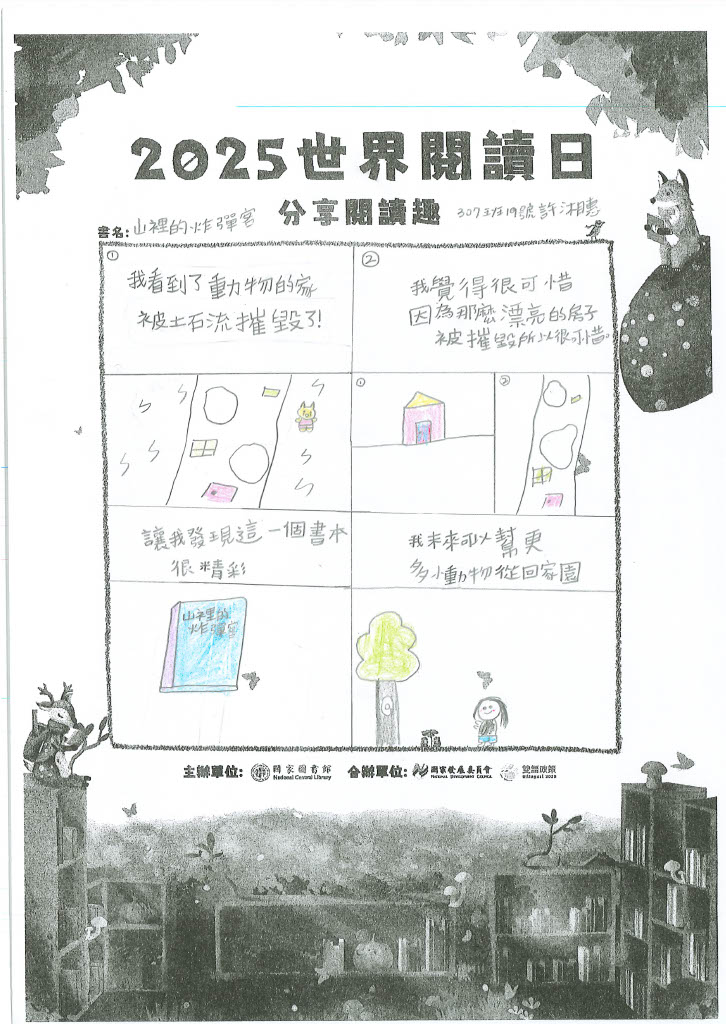 2025世界閱讀日
分享閱讀趣
307班19號許湘惠
書名:山裡的炸彈客
①
我看到了動物的家
被土石流摧毀了!
②
我覺得很可惜
因為那麼漂亮的房子
被摧毀所以很可惜。
①
②
讓我發現這一個書本
很精彩
我未來可以幫更
多小動物從回家園
山裡的
炸彈客
主辦單位: 國家圖書館 National Central Library 合辦單位: 國家發展委員會 NATIONAL DEVELOPMENT COUNCIL 雙語政策